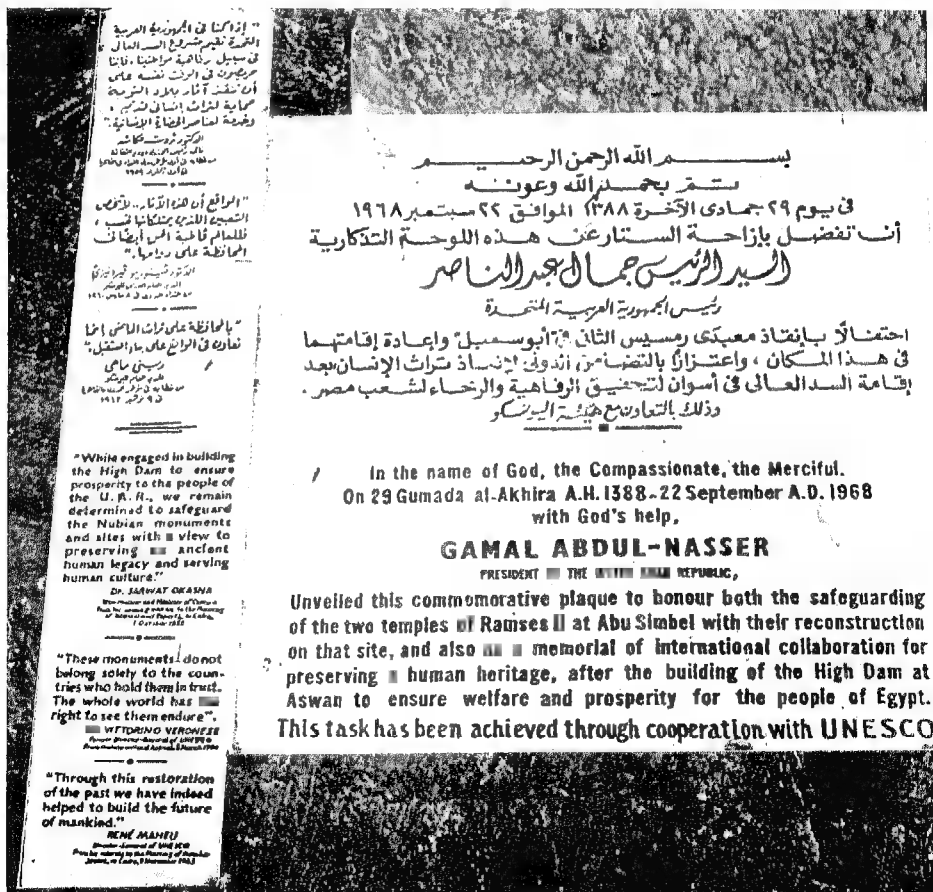 "إذا كنا في الجمهورية العربية
المتحدة نقيم مشروع السد العالي
في سبيل رفاهية مواطنينا، فإننا
حريصون في الوقت نفسه على
أن ننقذ آثار بلاد النوبة
حماية لتراث إنساني قديم،
وخدمة لعناصر الحضارة الإنسانية."
الدكتور ثروت عكاشه
"الواقع أن هذه الآثار.. لا تخص
الشعبين اللذين يمتلكانها فحسب،
فللعالم قاطبة الحق أيضا في
المحافظة على دوامها."
الدكتور فيتورينو فيرونيزي
"بالمحافظة على تراث الماضي إنما
نعاون في الواقع على بناء المستقبل."
رينيه ماهي
"While engaged in building
the High Dam to ensure
prosperity to the people of
the U.A.R., we remain
determined to safeguard
the Nubian monuments
and sites with view to
preserving ancient
human legacy and serving
human culture."
Dr. SARWAT OKASHA
"These monuments do not
belong solely to the coun-
tries who hold them in trust.
The whole world has
right to see them endure".
VITTORINO VERONESE
"Through this restoration
of the past we have indeed
helped to build the future
of mankind."
RENÉ MAHEU
Director-General of UNESCO
بسم الله الرحمن الرحيم
تم بحمد الله وعونه
في يوم ٢٩ جمادى الآخرة ١٣٨٨ الموافق ٢٢ سبتمبر ١٩٦٨
أن تفضل بإزاحة الستار عن هذه اللوحة التذكارية
السيد الرئيس جمال عبد الناصر
رئيس الجمهورية العربية المتحدة
احتفالًا بإنقاذ معبدى رمسيس الثاني في أبو سمبل وإعادة إقامتهما
في هذا المكان، واعتزازًا بالتضامن الدولي لإنقاذ تراث الإنسان بعد
إقامة السد العالى فى أسوان لتحقيق الرفاهية والرخاء لشعب مصر.
وذلك بالتعاون مع هيئة اليونسكو
In the name of God, the Compassionate, the Merciful.
On 29 Gumada al-Akhira A.H. 1388-22 September A.D. 1968
with God's help,
GAMAL ABDUL-NASSER
PRESIDENT THE REPUBLIC,
Unveiled this commemorative plaque to honour both the safeguarding
of the two temples of Ramses II at Abu Simbel with their reconstruction
on that site, and also as a memorial of international collaboration for
preserving human heritage, after the building of the High Dam at
Aswan to ensure welfare and prosperity for the people of Egypt.
This task has been achieved through cooperation with UNESCO